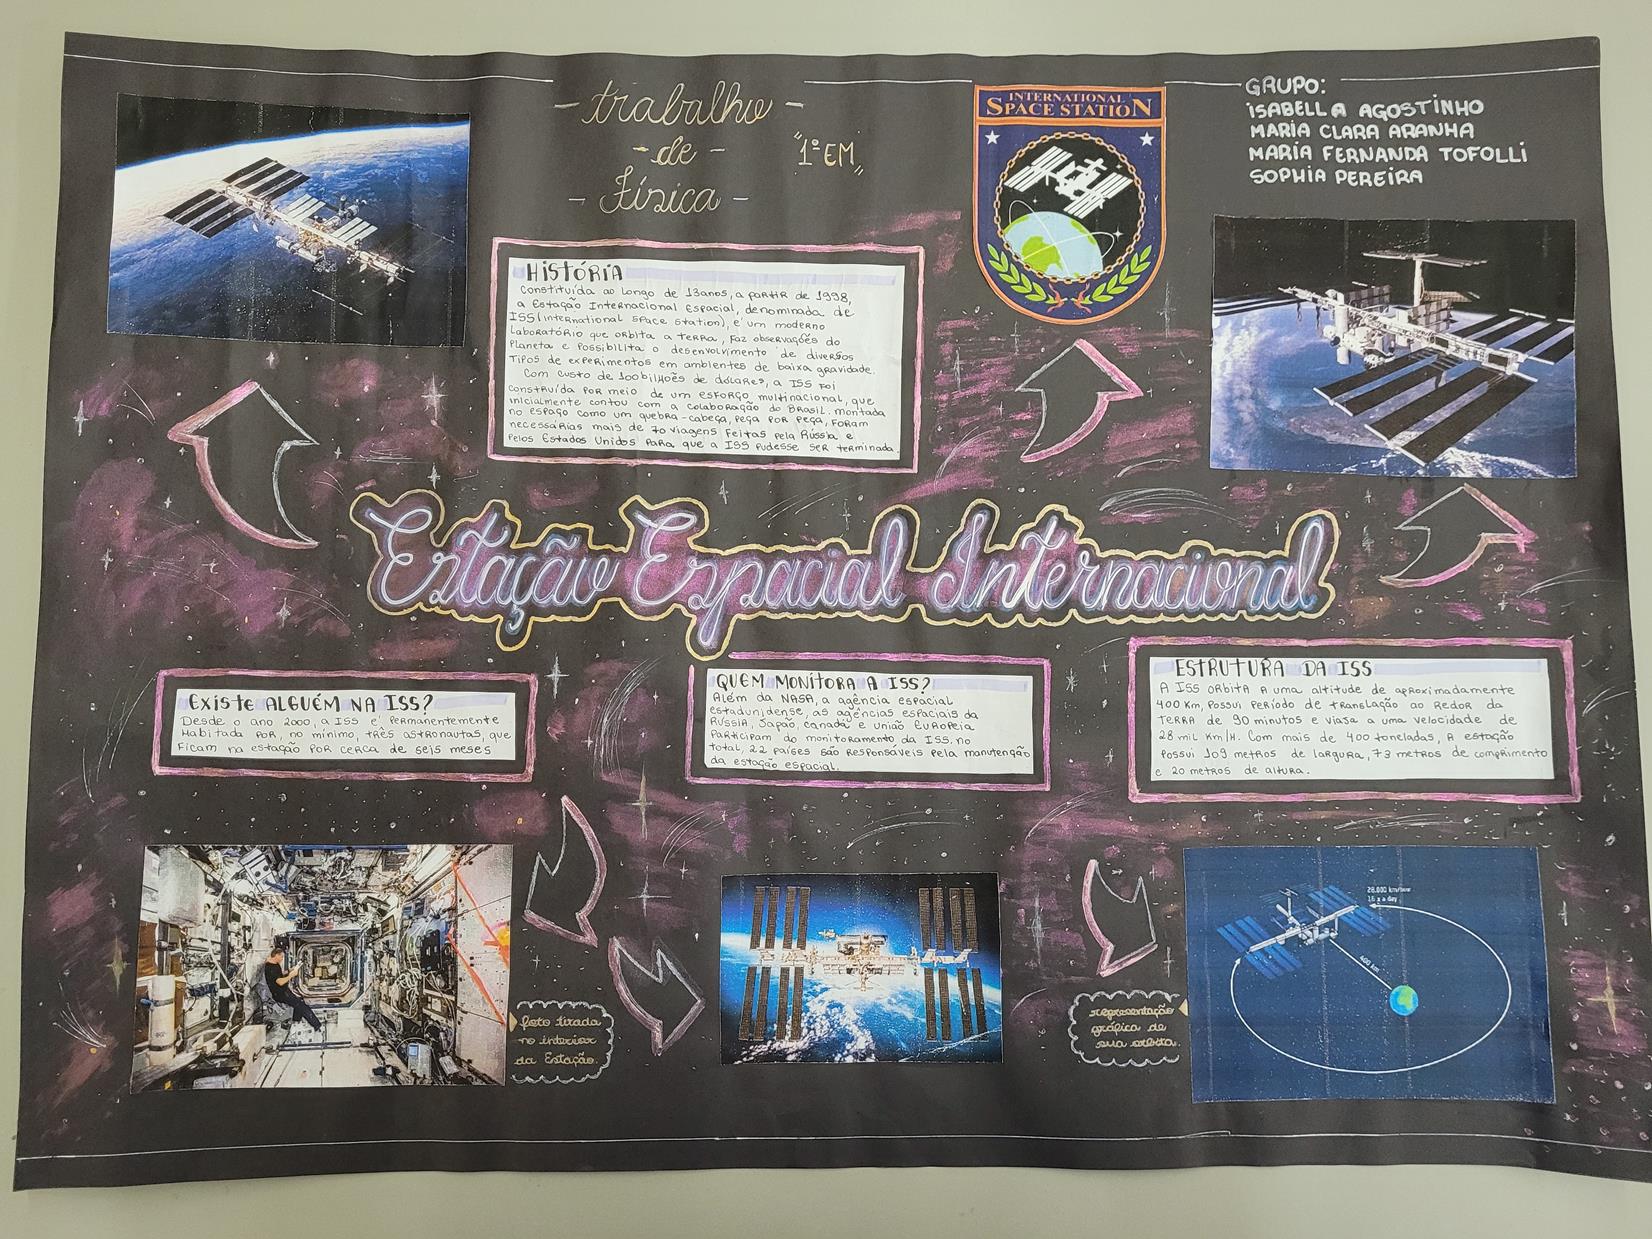 - trabalho -
- de -
- Física -
"1º EM"
INTERNATIONAL
SPACE STATION
GRUPO:
ISABELLA AGOSTINHO
MARIA CLARA ARANHA
MARIA FERNANDA TOFOLLI
SOPHIA PEREIRA
HISTÓRIA
Constituída ao longo de 13 anos, a partir de 1998,
a Estação Internacional Espacial, denominada de
ISS (International Space Station), é um moderno
laboratório que orbita a Terra, faz observações do
Planeta e possibilita o desenvolvimento de diversos
tipos de experimentos em ambientes de baixa gravidade.
Com custo de 100 bilhões de dólares, a ISS foi
construída por meio de um esforço multinacional, que
inicialmente contou com a colaboração do Brasil. montada
no espaço como um quebra-cabeça, peça por peça, foram
necessárias mais de 70 viagens feitas pela Rússia e
pelos Estados Unidos para que a ISS pudesse ser terminada
Estação Espacial Internacional
Existe ALGUÉM NA ISS?
Desde o ano 2000, a ISS é permanentemente
habitada por, no mínimo, três astronautas, que
ficam na estação por cerca de seis meses
QUEM MONITORA A ISS?
Além da NASA, a agência espacial
estadunidense, as agências espaciais da
Rússia, Japão, Canadá e União Europeia
participam do monitoramento da ISS. no
total, 22 países são responsáveis pela manutenção
da estação espacial.
ESTRUTURA DA ISS
A ISS orbita a uma altitude de aproximadamente
400 km, possui período de translação ao redor da
Terra de 90 minutos e viaja a uma velocidade de
28 mil km/h. Com mais de 400 toneladas, a estação
possui 109 metros de largura, 73 metros de comprimento
e 20 metros de altura.
foto tirada
no interior
da Estação.
representação
gráfica de
sua orbita.
28.000 km/hour
16 x a day
400 km